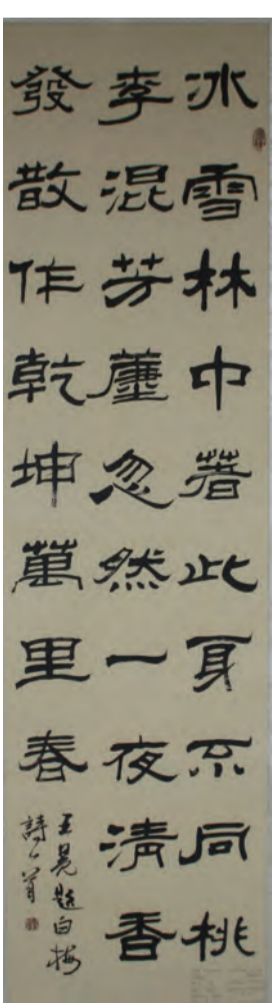 冰雪林中著此身不同桃
李混芳塵忽然一夜清香
發散作乾坤萬里春
王冕題白梅
詩一首